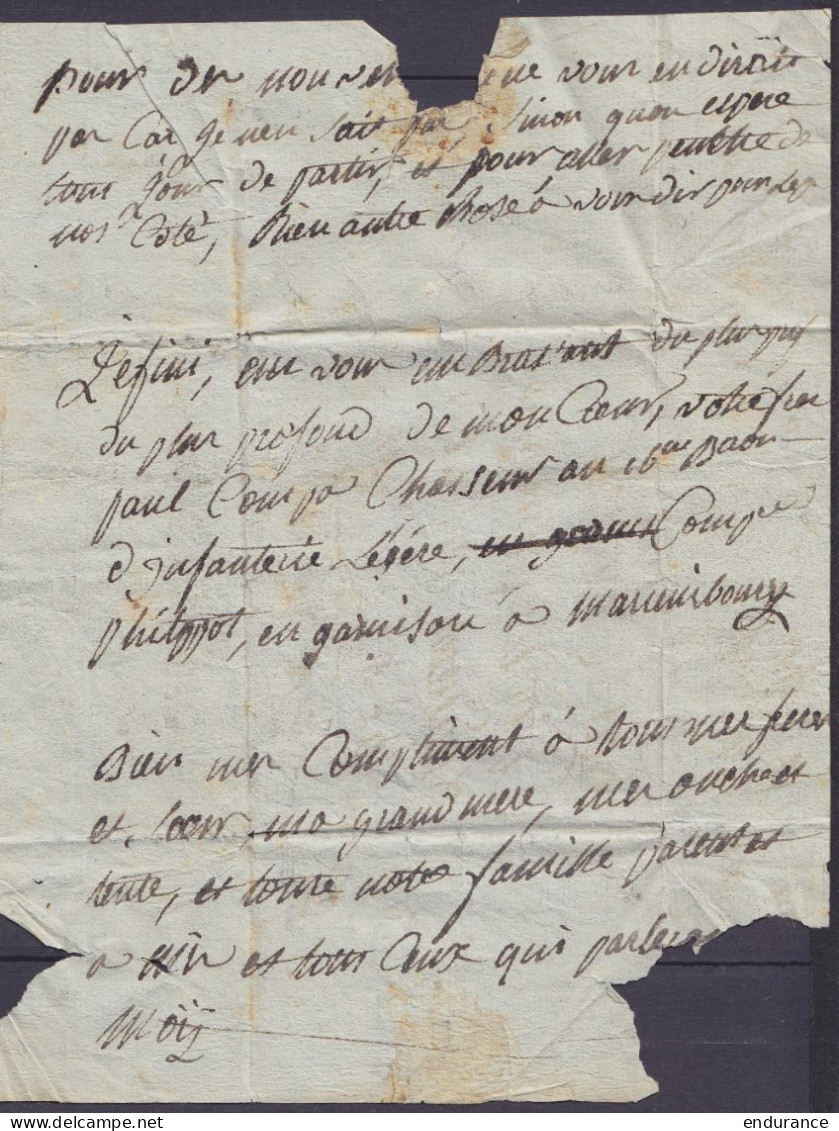 pour der nouvel ne vour en dirais
par Car je nen Sait par, Sinon quon espere
tour Jour de partir, et pour aller peutetre de
nos Coté, Bien autre Chose à vour dir pour Le
Jefini, en vour em Bras'ant du plur
du plur profond de mon Coeur, votre frer
paul Compa Chasseur au 16me Baon
d'infanterie Légére, Compe
philppot, en garnison à mariembourg
Bien mer Compliment à tour mer frerer
et Soeur, ma grand mere, mer oncle et
tente, et toute notre famille parent et
a mir et tour Ceux qui parler
Moÿ
endurance